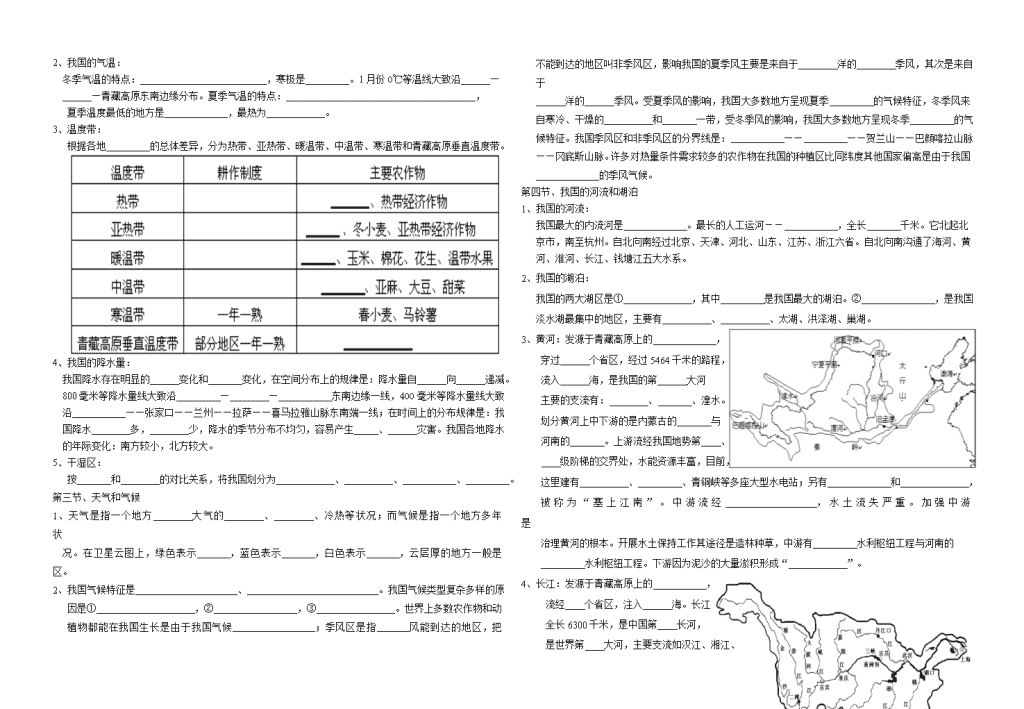 2、我国的气温：
冬季气温的特点：__________________________，寒极是_________。1月份0℃等温线大致沿______—
______—青藏高原东南边缘分布。夏季气温的特点：_______________________________________，
夏季温度最低的地方是_____________，最热为____________。
3、温度带：
根据各地_________的总体差异，分为热带、亚热带、暖温带、中温带、寒温带和青藏高原垂直温度带。
温度带 耕作制度 主要农作物
热带 ______、热带经济作物
亚热带 ______、冬小麦、亚热带经济作物
暖温带 ______、玉米、棉花、花生、温带水果
中温带 ________、亚麻、大豆、甜菜
寒温带 一年一熟 春小麦、马铃薯
青藏高原垂直温度带 部分地区一年一熟 __________
4、我国的降水量：
我国降水存在明显的______变化和_______变化，在空间分布上的规律是：降水量自______向______递减。
800毫米等降水量线大致沿_________—________—___________东南边缘一线，400毫米等降水量线大致
沿___________——张家口——兰州——拉萨——喜马拉雅山脉东南端一线；在时间上的分布规律是：我
国降水________多，________少，降水的季节分布不均匀，容易产生_____、______灾害。我国各地降水
的年际变化：南方较小，北方较大。
5、干湿区：
按_______和________的对比关系，将我国划分为____________、__________、___________、_________。
第三节、天气和气候
1、天气是指一个地方________大气的________、________、冷热等状况；而气候是指一个地方多年
状
况。在卫星云图上，绿色表示_______，蓝色表示_______，白色表示_______，云层厚的地方一般是
区。
2、我国气候特征是_____________________、__________________________。我国气候类型复杂多样的原
因是①____________________，②_________________，③________________。世界上多数农作物和动
植物都能在我国生长是由于我国气候_________________；季风区是指_______风能到达的地区，把
不能到达的地区叫非季风区，影响我国的夏季风主要是来自于________洋的________季风，其次是来自
于
______洋的______季风。受夏季风的影响，我国大多数地方呈现夏季_________的气候特征，冬季风来
自寒冷、干燥的__________和_______一带，受冬季风的影响，我国大多数地方呈现冬季_________的气
候特征。我国季风区和非季风区的分界线是：___________——_________——贺兰山——巴颜喀拉山脉
——冈底斯山脉。许多对热量条件需求较多的农作物在我国的种植区比同纬度其他国家偏高是由于我国
_____________的季风气候。
第四节、我国的河流和湖泊
1、我国的河流：
我国最大的内流河是_____________。最长的人工运河——___________，全长_______千米。它北起北
京市，南至杭州。自北向南经过北京、天津、河北、山东、江苏、浙江六省。自北向南沟通了海河、黄
河、淮河、长江、钱塘江五大水系。
2、我国的湖泊：
我国的两大湖区是①______________，其中_________是我国最大的湖泊。②_______________，是我国
淡水湖最集中的地区，主要有__________、__________、太湖、洪泽湖、巢湖。
3、黄河：发源于青藏高原上的_____________，
穿过______个省区，经过5464千米的路程，
流入______海，是我国的第______大河
主要的支流有：________、________、湟水。
划分黄河上中下游的是内蒙古的_______与
河南的_______。上游流经我国地势第____、
____级阶梯的交界处，水能资源丰富，目前，
这里建有__________、__________、青铜峡等多座大型水电站；另有_____________和_____________，
被称为“塞上江南”。中游流经__________________，水土流失严重。加强中游
是
治理黄河的根本。开展水土保持工作其途径是造林种草，中游有_________水利枢纽工程与河南的
_________水利枢纽工程。下游因为泥沙的大量淤积形成“____________”。
宁夏平原
河套平原
河口
太行山
渤海
湟水
汾河
旧孟津
渭河
巴颜喀拉山
秦岭
4、长江：发源于青藏高原上的___________，
流经____个省区，注入______海。长江
全长6300千米，是中国第____长河，
是世界第____大河，主要支流如汉江、湘江、
丹江口
三峡
宜昌
葛洲坝
武汉
湖口
上海
重庆
宜宾
二滩